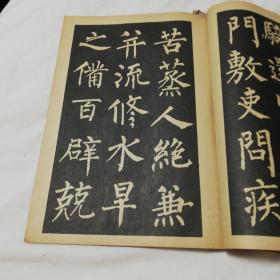 門敷吏問疾
苦蒸人絶兼
并流修水旱
之備百辟兢